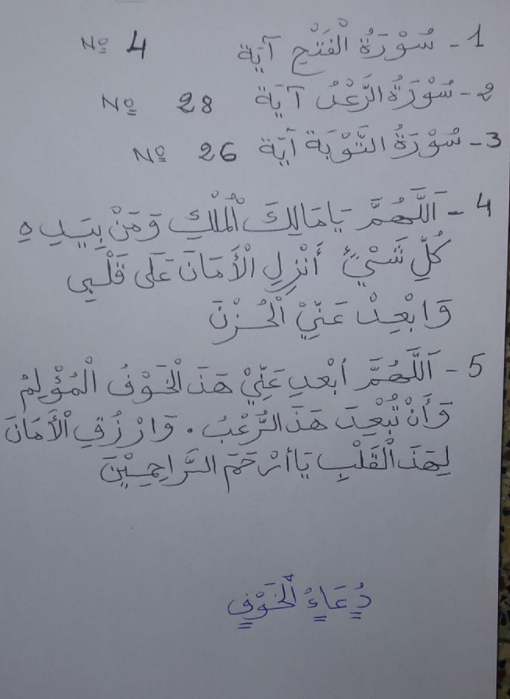 1- سُوْرَةُ الْفَتْحِ آيَة Nº 4
2- سُوْرَةُ الرَّعْدُ آيَة Nº 28
3- سُوْرَةُ التَّوْبَة آيَة Nº 26
4- اَللَّهُمَّ يَا مَالِكَ الْمُلْكِ وَمَنْ بِيَدِهِ
كُلِّ شَيْءٍ أَنْزِلِ الْأَمَانَ عَلَى قَلْبِي
وَابْعِدْ عَنِّيْ الْحُزْنَ
5- اَللَّهُمَّ أبْعِدِ عَنِّيْ هَذَ الْخَوْفُ الْمُؤْلِمُ
وَأَنْ تُبْعِدَ هَذَ الرُّعْبُ. وَارْزُقِ الْأَمَانَ
لِهَذَ الْقَلْبِ يَا أرْحَمَ الرَّاحِمِيْنَ
دُعَاءُ لْخَوْفِ